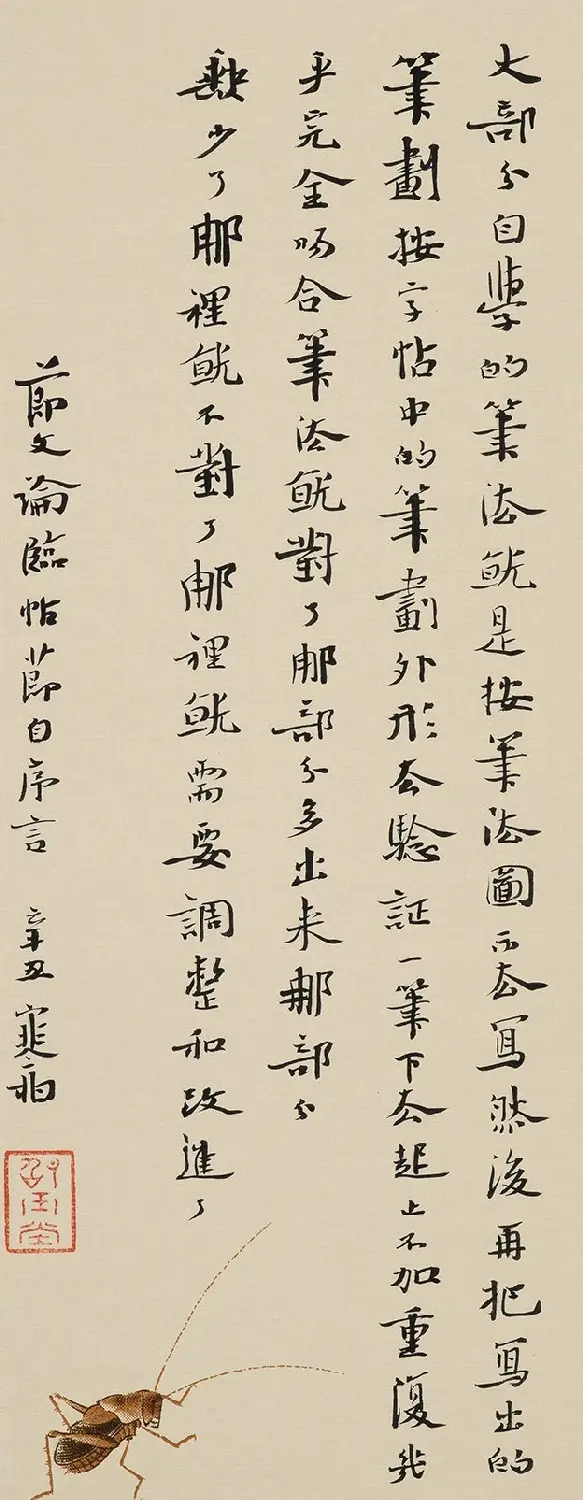 大部分自學的筆法就是按筆法圖示去寫然後再把寫出的
筆劃按字帖中的筆劃外形去驗証一筆下去起止不加重復幾
乎完全吻合筆法就對了那部分多出來那部分
缺少了那裡就不對了那裡就需要調整和改進了
節文論臨帖節自序言 辛丑